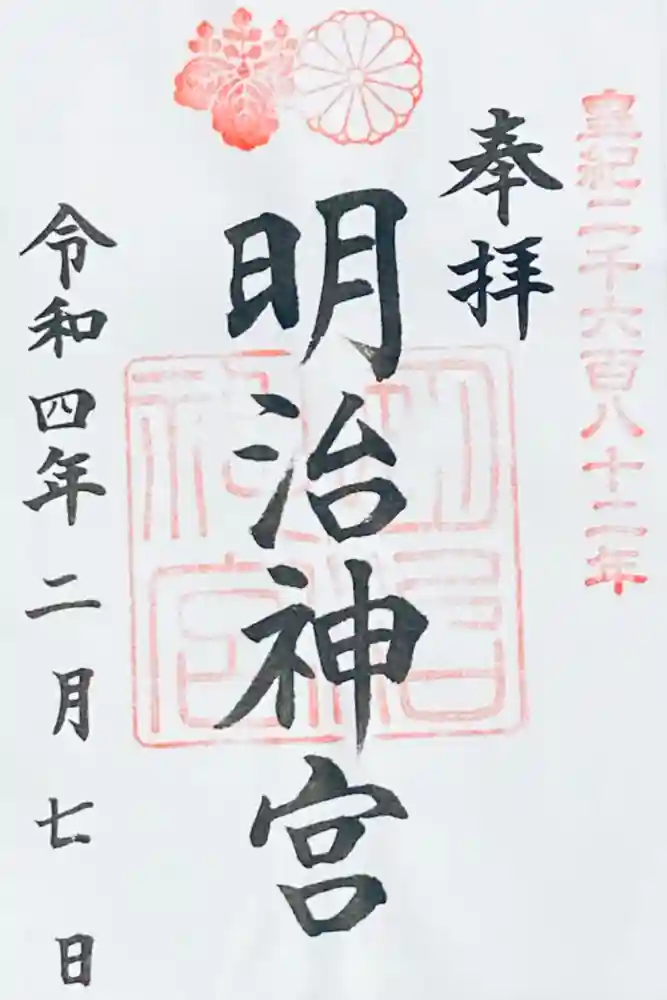 皇紀二千六百八十二年
奉拝
明治神宮
明治神宮
令和四年二月七日